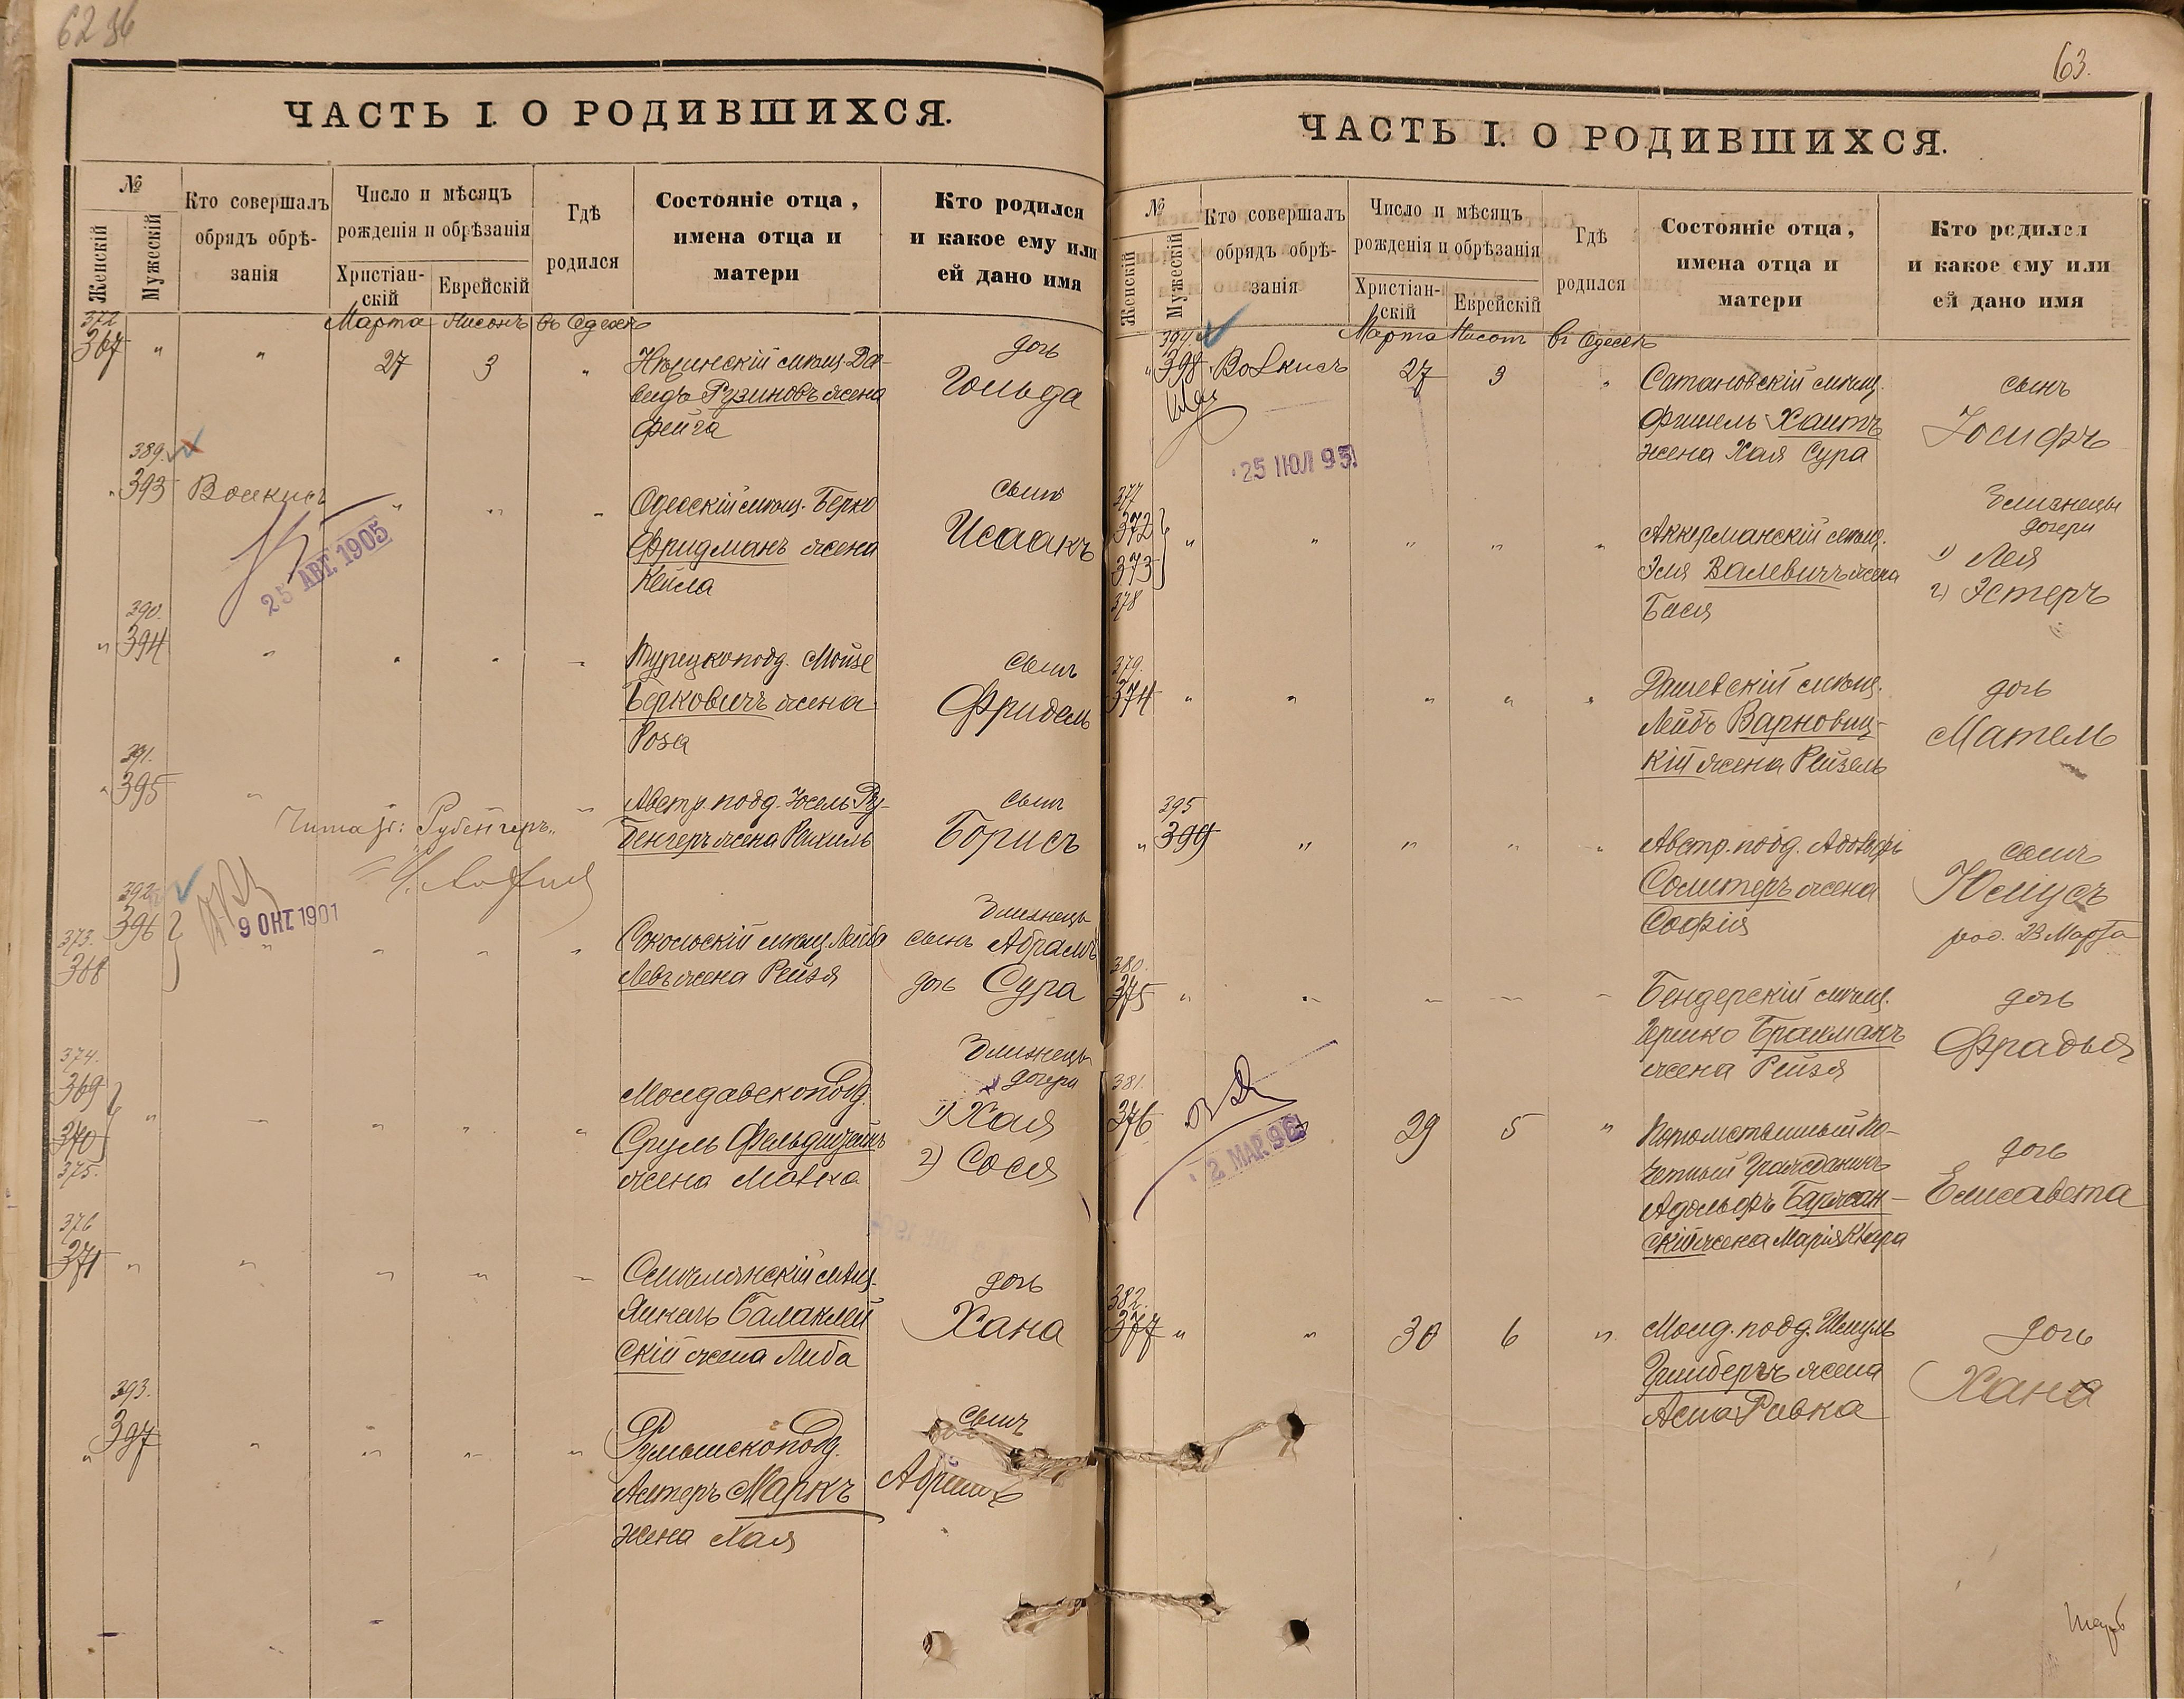 62
ЧАСТЬ I. О РОДИВШИХСЯ.
№
Женскій
Мужескій
Кто совершалъ
обрядъ обрѣ-
занія
Число и мѣсяцъ
рожденія и обрѣзанія
Христіан-
скій
Еврейскій
Гдѣ
родился
Состояніе отца,
имена отца и
матери
Кто родился
и какое ему или
ей дано имя
Марта Нисонъ въ Одессѣ
372
367 " " 27 3 "
Нѣжинскій мѣщ. Да-
видъ Рузиновъ жена
Фейга
дочь
Гольда
389.
" 393 Волкисъ " " "
25 АВГ. 1905
Одесскій мѣщ. Берко
Фридманъ жена
Кейла
сынъ
Исаакъ
390.
" 394 " " " "
Турецкопод. Мойсе
Берковичъ жена
Роза
сынъ
Фридель
391.
" 395 " "
Австр. подд. Іосель Ру-
бенгеръ жена Рахиль
сынъ
Борисъ
Читать: Рубенгеръ.
392
396
373.
368 " " " "
9 ОКТ 1901
Сокольскій мѣщ. Лейба
Левъ жена Рейзя
Близнецы
сынъ Абрамъ
дочь Сура
374.
369
370
375.
" " " " "
Молдавскоподд.
Сруль Фельдштейнъ
жена Малка
Близнецы
дочери
1) Хая
2) Сося
376
371 " " " " "
мѣщ.
Янкель Балаклей
скій жена Либа
дочь
Хана
393.
" 397 " " " "
Румынскоподд.
Алтеръ Маркъ
жена Хая
сынъ
63.
ЧАСТЬ I. О РОДИВШИХСЯ.
№
Женскій
Мужескій
Кто совершалъ
обрядъ обрѣ-
занія
Число и мѣсяцъ
рожденія и обрѣзанія
Христіан-
скій
Еврейскій
Гдѣ
родился
Состояніе отца,
имена отца и
матери
Кто родился
и какое ему или
ей дано имя
Марта Нисон въ Одессѣ
394
" 398 Волкисъ 27 3 "
25 ІЮЛ 95
Сатановскій мѣщ.
Фишель Хаитъ
жена Хая Сура
сынъ
Іосифъ
377
372
373
378
" " " " "
Аккерманскій мѣщ.
Эля Валевичъ жена
Бася
Близнецы
дочери
1) Лея
2) Эстеръ
379.
374 " " " " "
Дашевскій мѣщ.
Лейбъ Варновиц-
кій жена Рейзель
дочь
Матель
395
" 399 " " " "
Австр. подд. Адольфъ
Солитеръ жена
Софія
сынъ
Юлиусъ
род. 23 Марта
380.
375 " " " " "
Бендерскій мѣщ.
Гершко Бракманъ
жена Рейзя
дочь
Фрадья
381.
376 29 5 "
2 МАР. 96
Потомственный По-
четный Гражданинъ
Адольфъ Баржан-
скій жена Марія Клара
дочь
Елисавета
382.
377 " " 30 6 "
Молд. подд. Шмуль
Гринбергъ жена
Ася Ривка
дочь
Хана